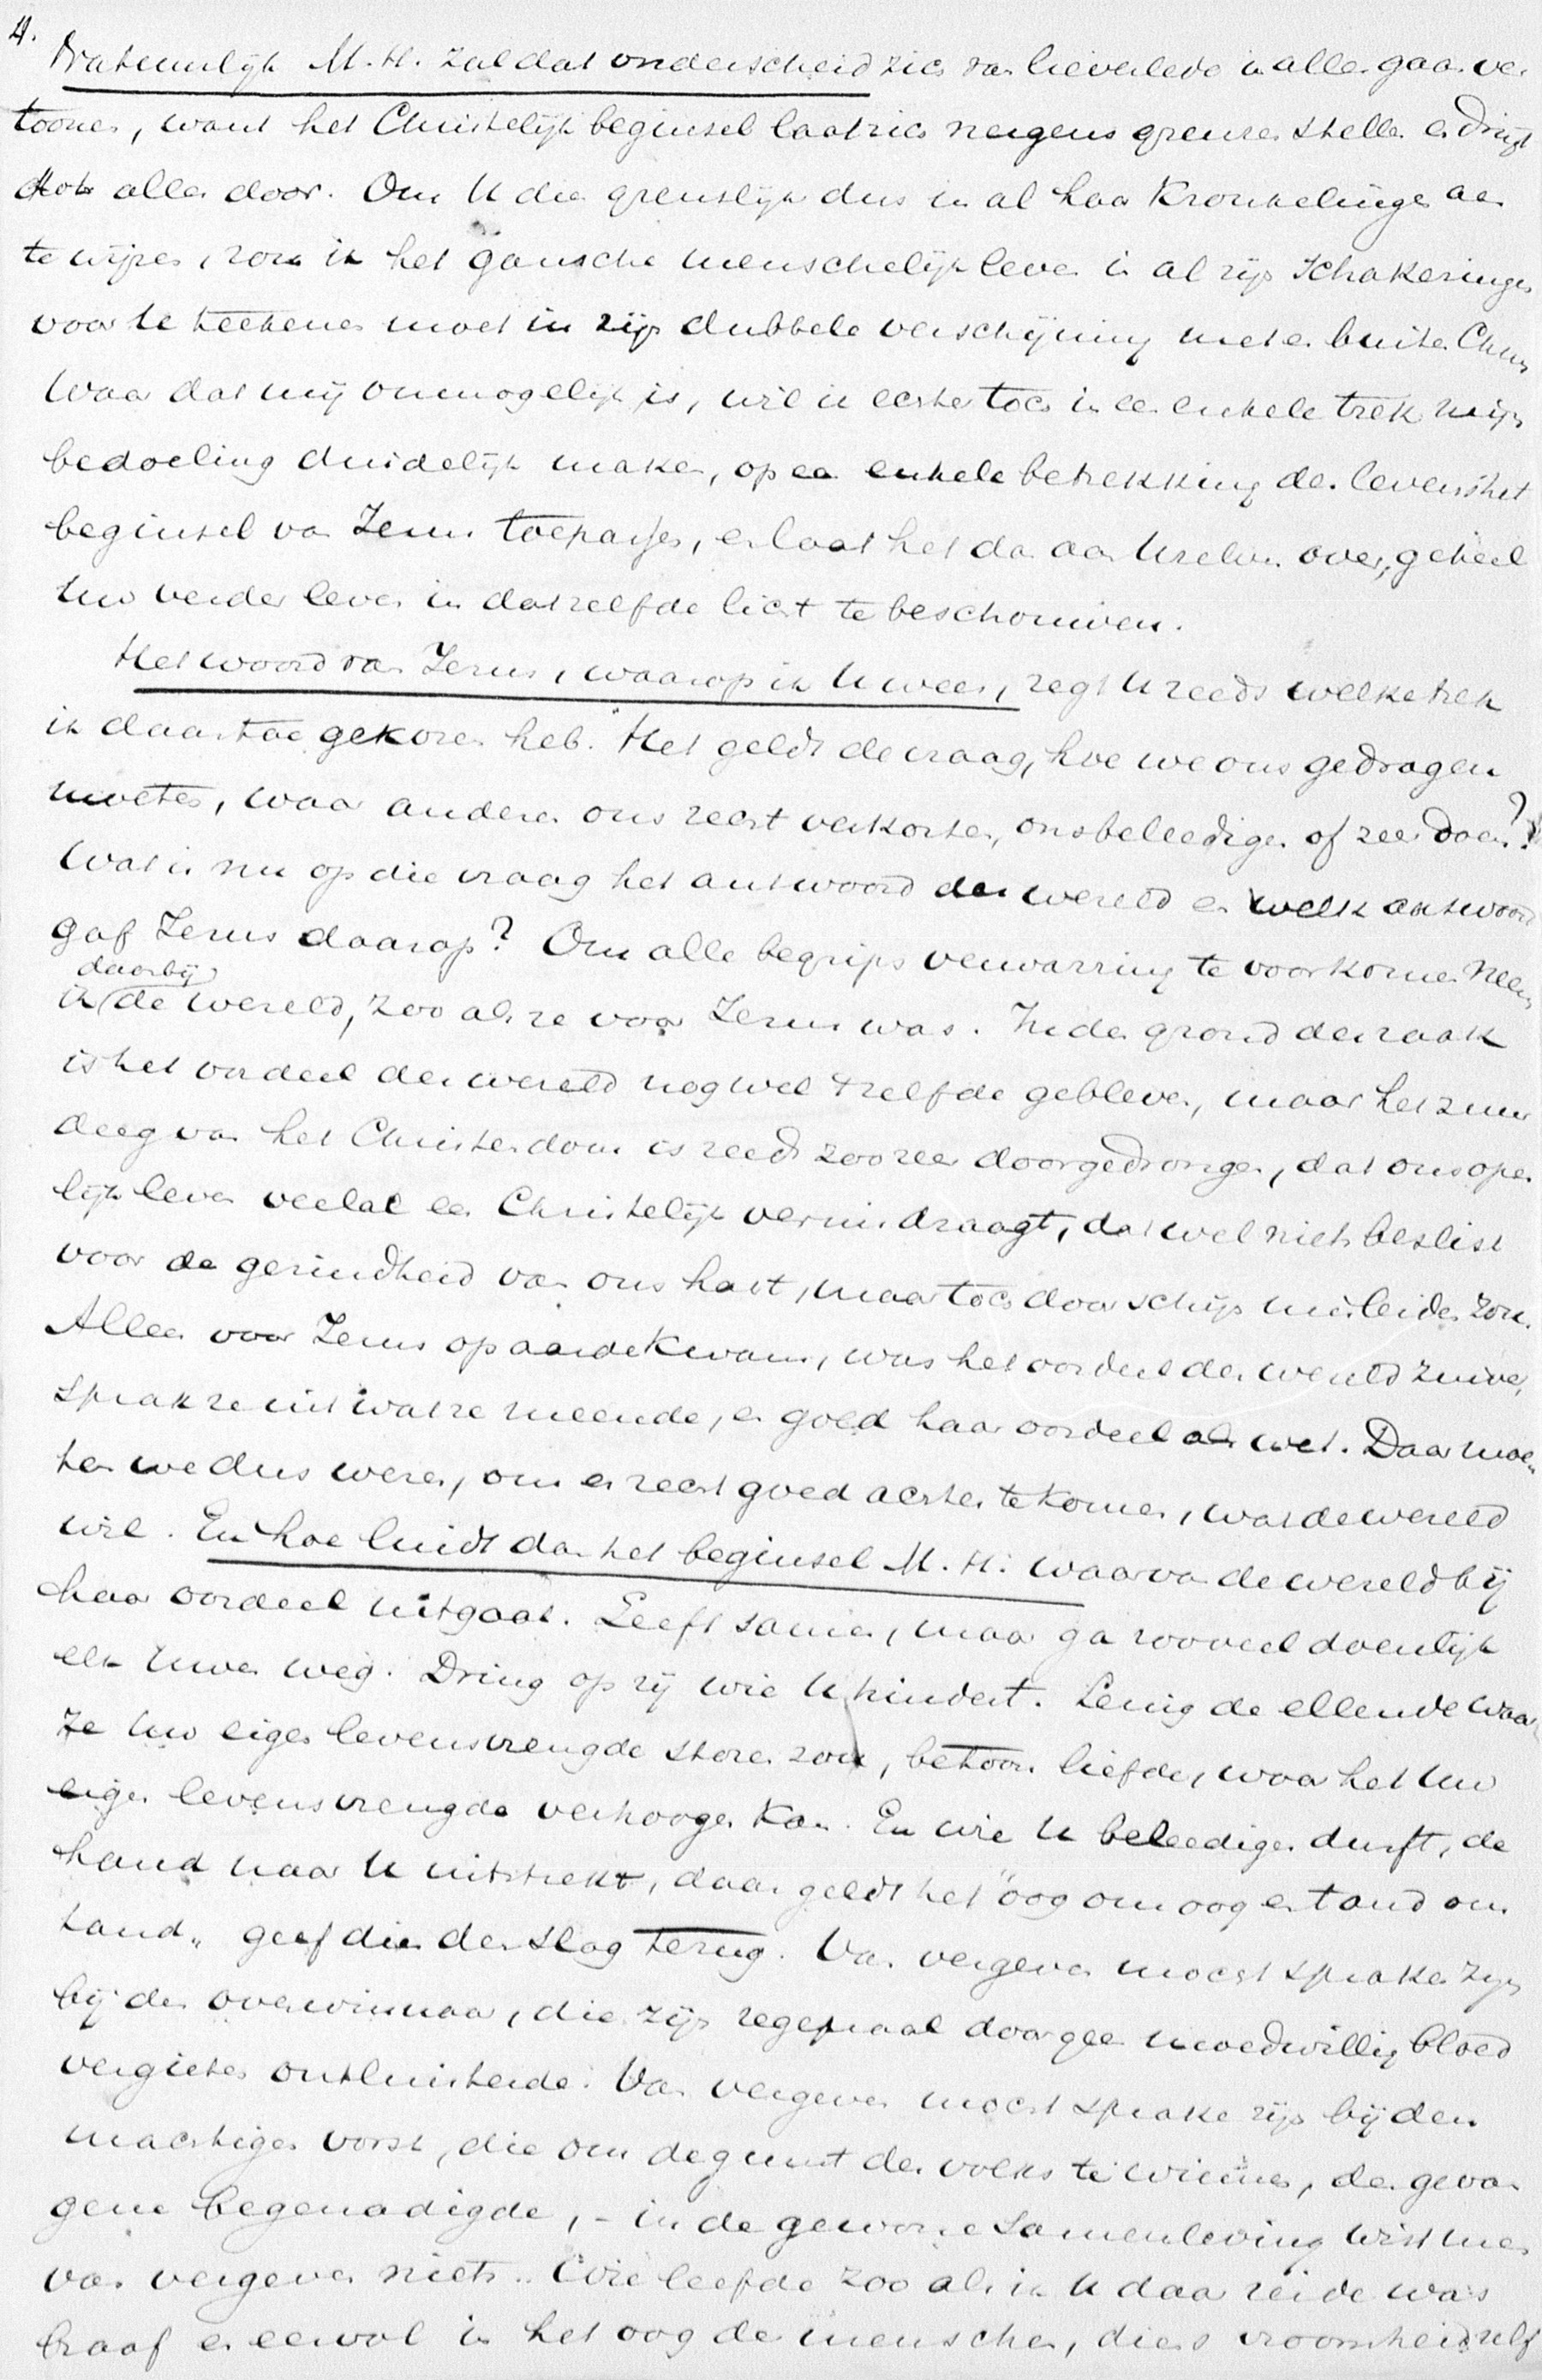 4.
Natuurlijk M.H. zal dat onderscheid zich van lieverlede in alles gaan ver
toonen, want het Christelijk beginsel laat zich nergens grenzen stellen en dringt
tot alles door. Om U die grenslijn dus in al haar kronkelingen aan
te wijzen, zou ik het gansche menschelijk leven in al zijn schakeringen
voor te teekenen moet in zijn dubbele verschijning met en buiten Chris
Waar dat mij onmogelijk is, wil ik echter toch in een enkele trek mijn
bedoeling duidelijk maken, op een enkele betrekking des levens het
beginsel van Jezus toepassen, en laat het dan aan Uzelven over, geheel
Uw verder leven in datzelfde licht te beschouwen.
Het woord van Jezus, waarop ik U wees, zegt U reeds welke trek
ik daartoe gekozen heb. Het geldt de vraag, hoe we ons gedragen
moeten, waar anderen ons recht verkorten, ons beleedigen of zeer doen?
Wat is nu op die vraag het antwoord der wereld en welk antwoord
gaf Jezus daarop? Om alle begrips verwarring te voorkomen neem
ik daarbij de wereld, zoo als ze voor Jezus was. In den grond der zaak
is het oordeel der wereld nog wel 't zelfde gebleven, maar het zuur
deeg van het Christendom is reeds zoozeer doorgedrongen, dat ons open
lijk leven veelal een Christelijk vernis draagt, dat wel niets beslist
voor de gezindheid van ons hart, maar toch door schijn misleiden zou.
Alleen voor Jezus op aarde kwam, was het oordeel der wereld zuiver,
sprak ze uit wat ze meende, en goed haar oordeel als wet. Daar moe
ten we dus wezen, om er recht goed achter te komen, wat de wereld
wil. En hoe luidt dan het beginsel M.H. waarvan de wereld bij
haar oordeel uitgaat. Leeft samen, maar ga zooveel doenlijk
elk Uwen weg. Dring op zij wie U hindert. Lenig de ellende waar
ze Uw eigen levensvreugde storen zou, betoon liefde, waar het Uw
eigen levensvreugde verhoogen kan. En wie U beleedigen durft, de
hand naar U uitstrekt, daar geldt het "oog om oog en tand om
tand" geef dien den slag terug. Van vergeven mocht sprake zijn
bij den overwinnaar, die zijn zegepraal door geen moedwillig bloed
vergieten ontluisterde. Van vergeven mocht sprake zijn bij den
machtigen vorst, die om de gunst des volks te winnen, den gevan
gene begenadigde, - in de gewone samenleving wist men
van vergeven niets. Wie leefde zoo als ik U daar zeide was
braaf en eervol in het oog der menschen, diens vroomheid zelf